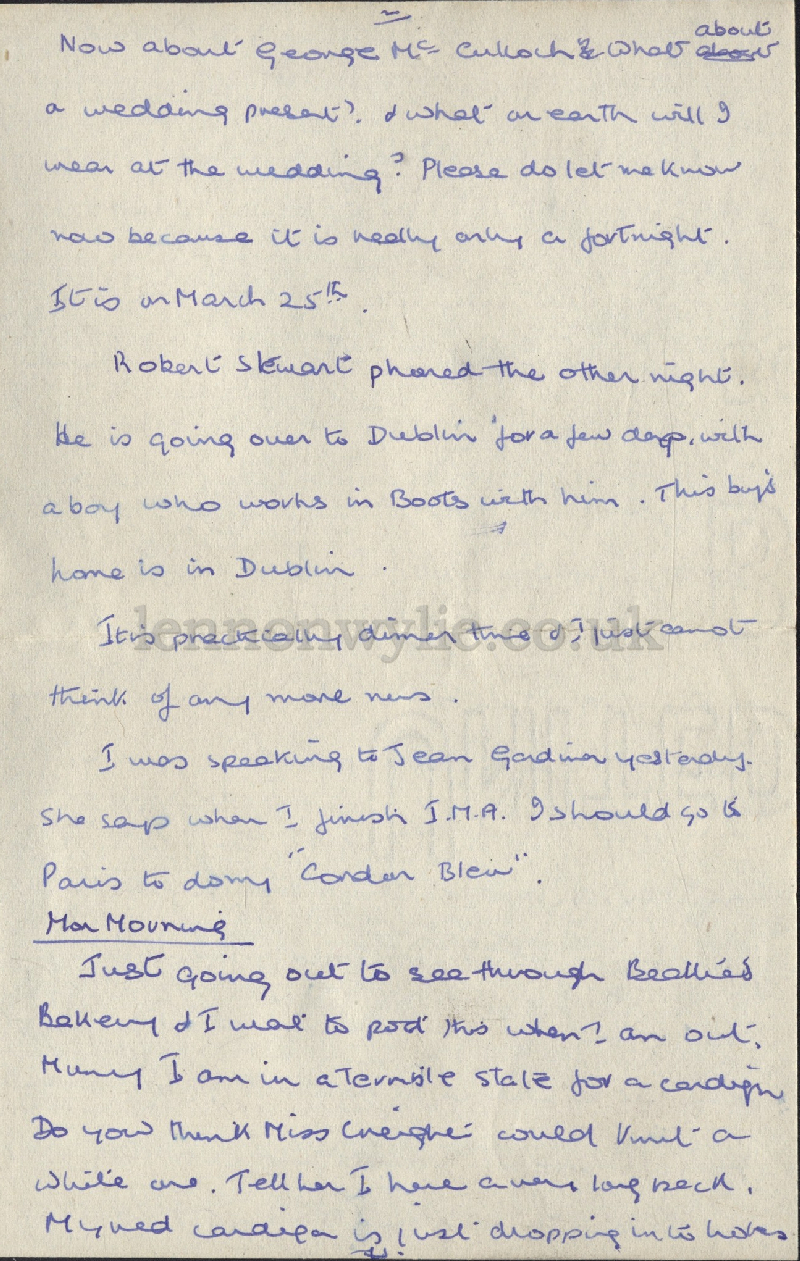 Now about George Mc Culloch & what about
a wedding present?. & what on earth will I
wear at the wedding? Please do let me know
now because it is really only a fortnight.
It is on March 25th.
Robert Stewart phoned the other night.
He is going over to Dublin for a few days, with
a boy who works in Boots with him. This boy's
home is in Dublin.
lennonwylie.co.uk
It is practically dinner time & I just cannot
think of any more news.
I was speaking to Jean Gardiner yesterday.
She says when I finish I.M.A. I should go to
Paris to do my "Cordon Bleu".
Mon Mourning
Just going out to see through Beattie's
Bakery & I want to post this when I am out.
Mummy I am in a terrible state for a cardigan
Do you think Miss Creight could knit a
white one. Tell her I have a very long back.
My red cardigan is just dropping into holes